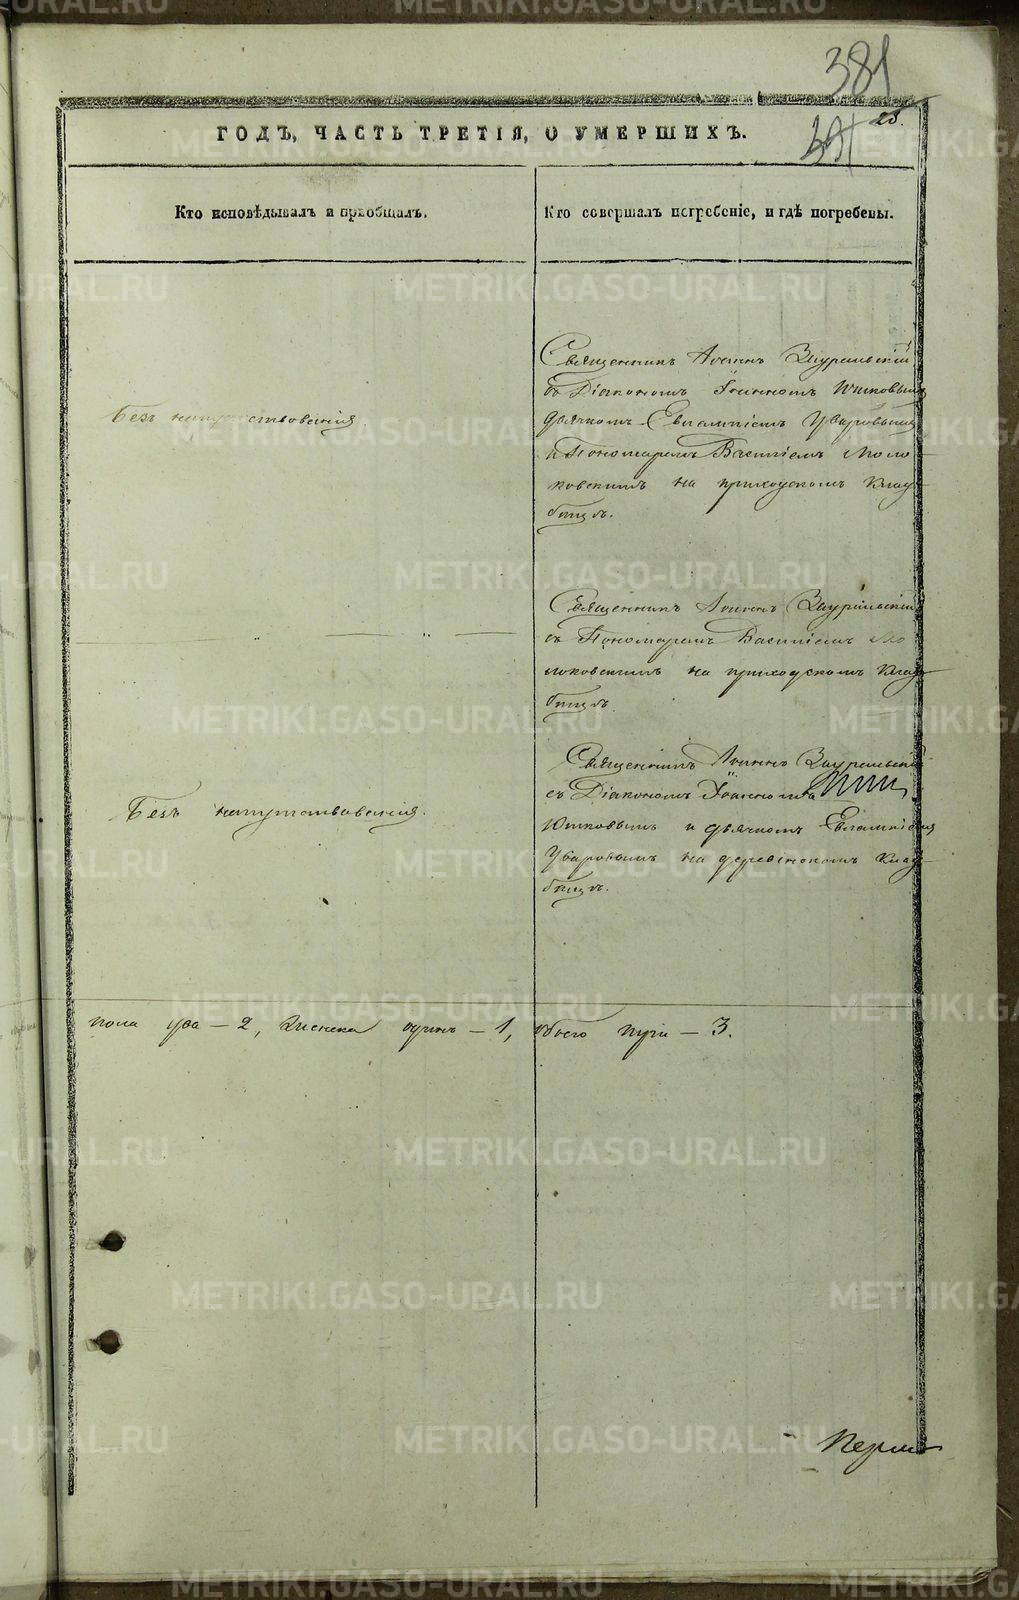 381
28.
ГОДЪ, ЧАСТЬ ТРЕТІЯ, О УМЕРШИХЪ.
Кто исповѣдывалъ и пріобщалъ.
Кто совершалъ погребеніе, и гдѣ погребены.
Безъ напутствованія.
Священникъ Іоаннъ Зауральскій
съ Діакономъ Іоанномъ
дьячкомъ Евлампіемъ Уваровымъ
и Пономаремъ Василіемъ Моло-
ковскимъ на приходскомъ клад-
бищѣ.
— „ — „ —
Священникъ Іоаннъ Зауральскій
съ Пономаремъ Василіемъ Мо-
локовскимъ на приходскомъ клад-
бищѣ.
Безъ напутствованія.
Священникъ Іоаннъ Зауральскій
съ Діакономъ Іоанномъ
и дьячкомъ Евлампіемъ
Уваровымъ на деревенскомъ клад-
бищѣ.
пола два – 2, женска одинъ – 1, обоего пула – 3.
METRIKI.GASO-URAL.RU